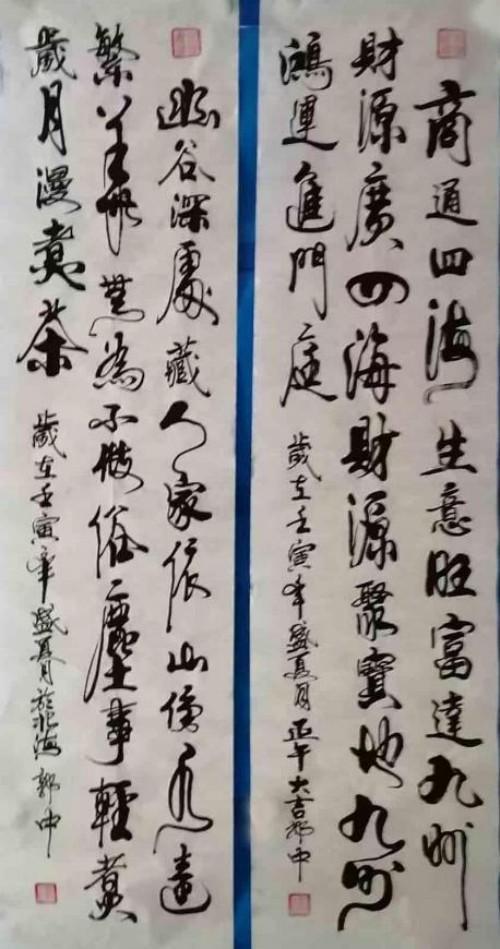 商通四海生意旺富達九州
財源廣四海財源聚寶地九州
鴻運進門庭
歲在壬寅年盛夏月正午大吉郭中
幽谷深處藏人家依山傍水遠
繁華無為不做俗塵事輕煮
歲月漫煮茶
歲在壬寅年盛夏月於北海郭中